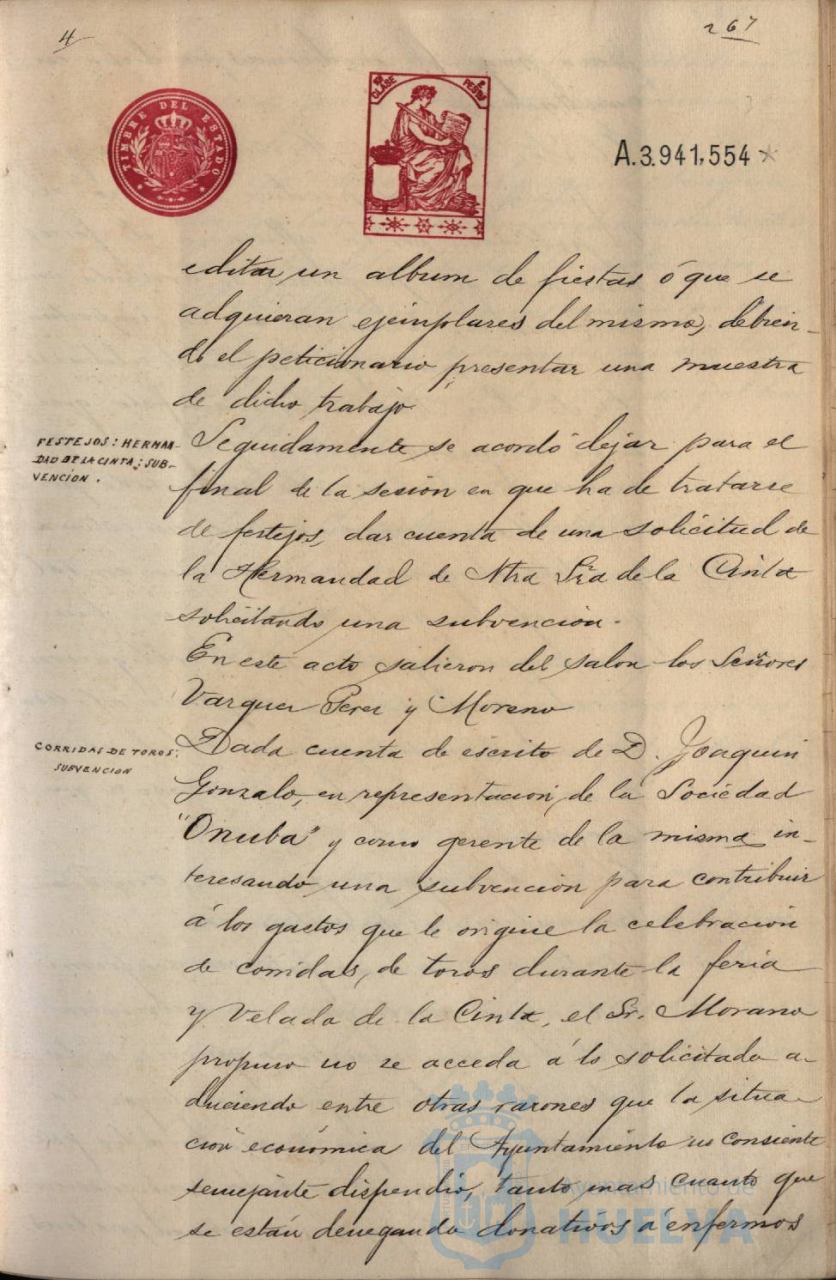 4
267
TIMBRE DEL ESTADO
CLASE
PESETAS
A.3.941,554
editar un album de fiestas ó que se
adquieran ejemplares del mismo, debien-
do el peticionario presentar una muestra
de dicho trabajo.
FESTEJOS: HERMAN-
DAD DE LA CINTA; SUB-
VENCIÓN.
Seguidamente se acordó dejar para el
final de la sesión en que ha de tratarse
de festejos, dar cuenta de una solicitud de
la Hermandad de Ntra Sra de la Cinta
solicitando una subvención.
En este acto salieron del salon los Señores
Vazquez Perez y Moreno
CORRIDAS DE TOROS,
SUBVENCION
Dada cuenta de escrito de D. Joaquin
Gonzalo, en representación, de la Sociedad
"Onuba" y como gerente de la misma in-
teresando una subvención para contribuir
á los gastos que le origine la celebración
de corridas, de toros durante la feria
y Velada de la Cinta, el Sr. Morano
propuso no se acceda á lo solicitado a-
duciendo entre otras razones que la situa-
ción económica del Ayuntamiento no consiente
semejante dispendio, tanto mas cuanto que
se están denegando donativos a enfermos
Ayuntamiento de
HUELVA